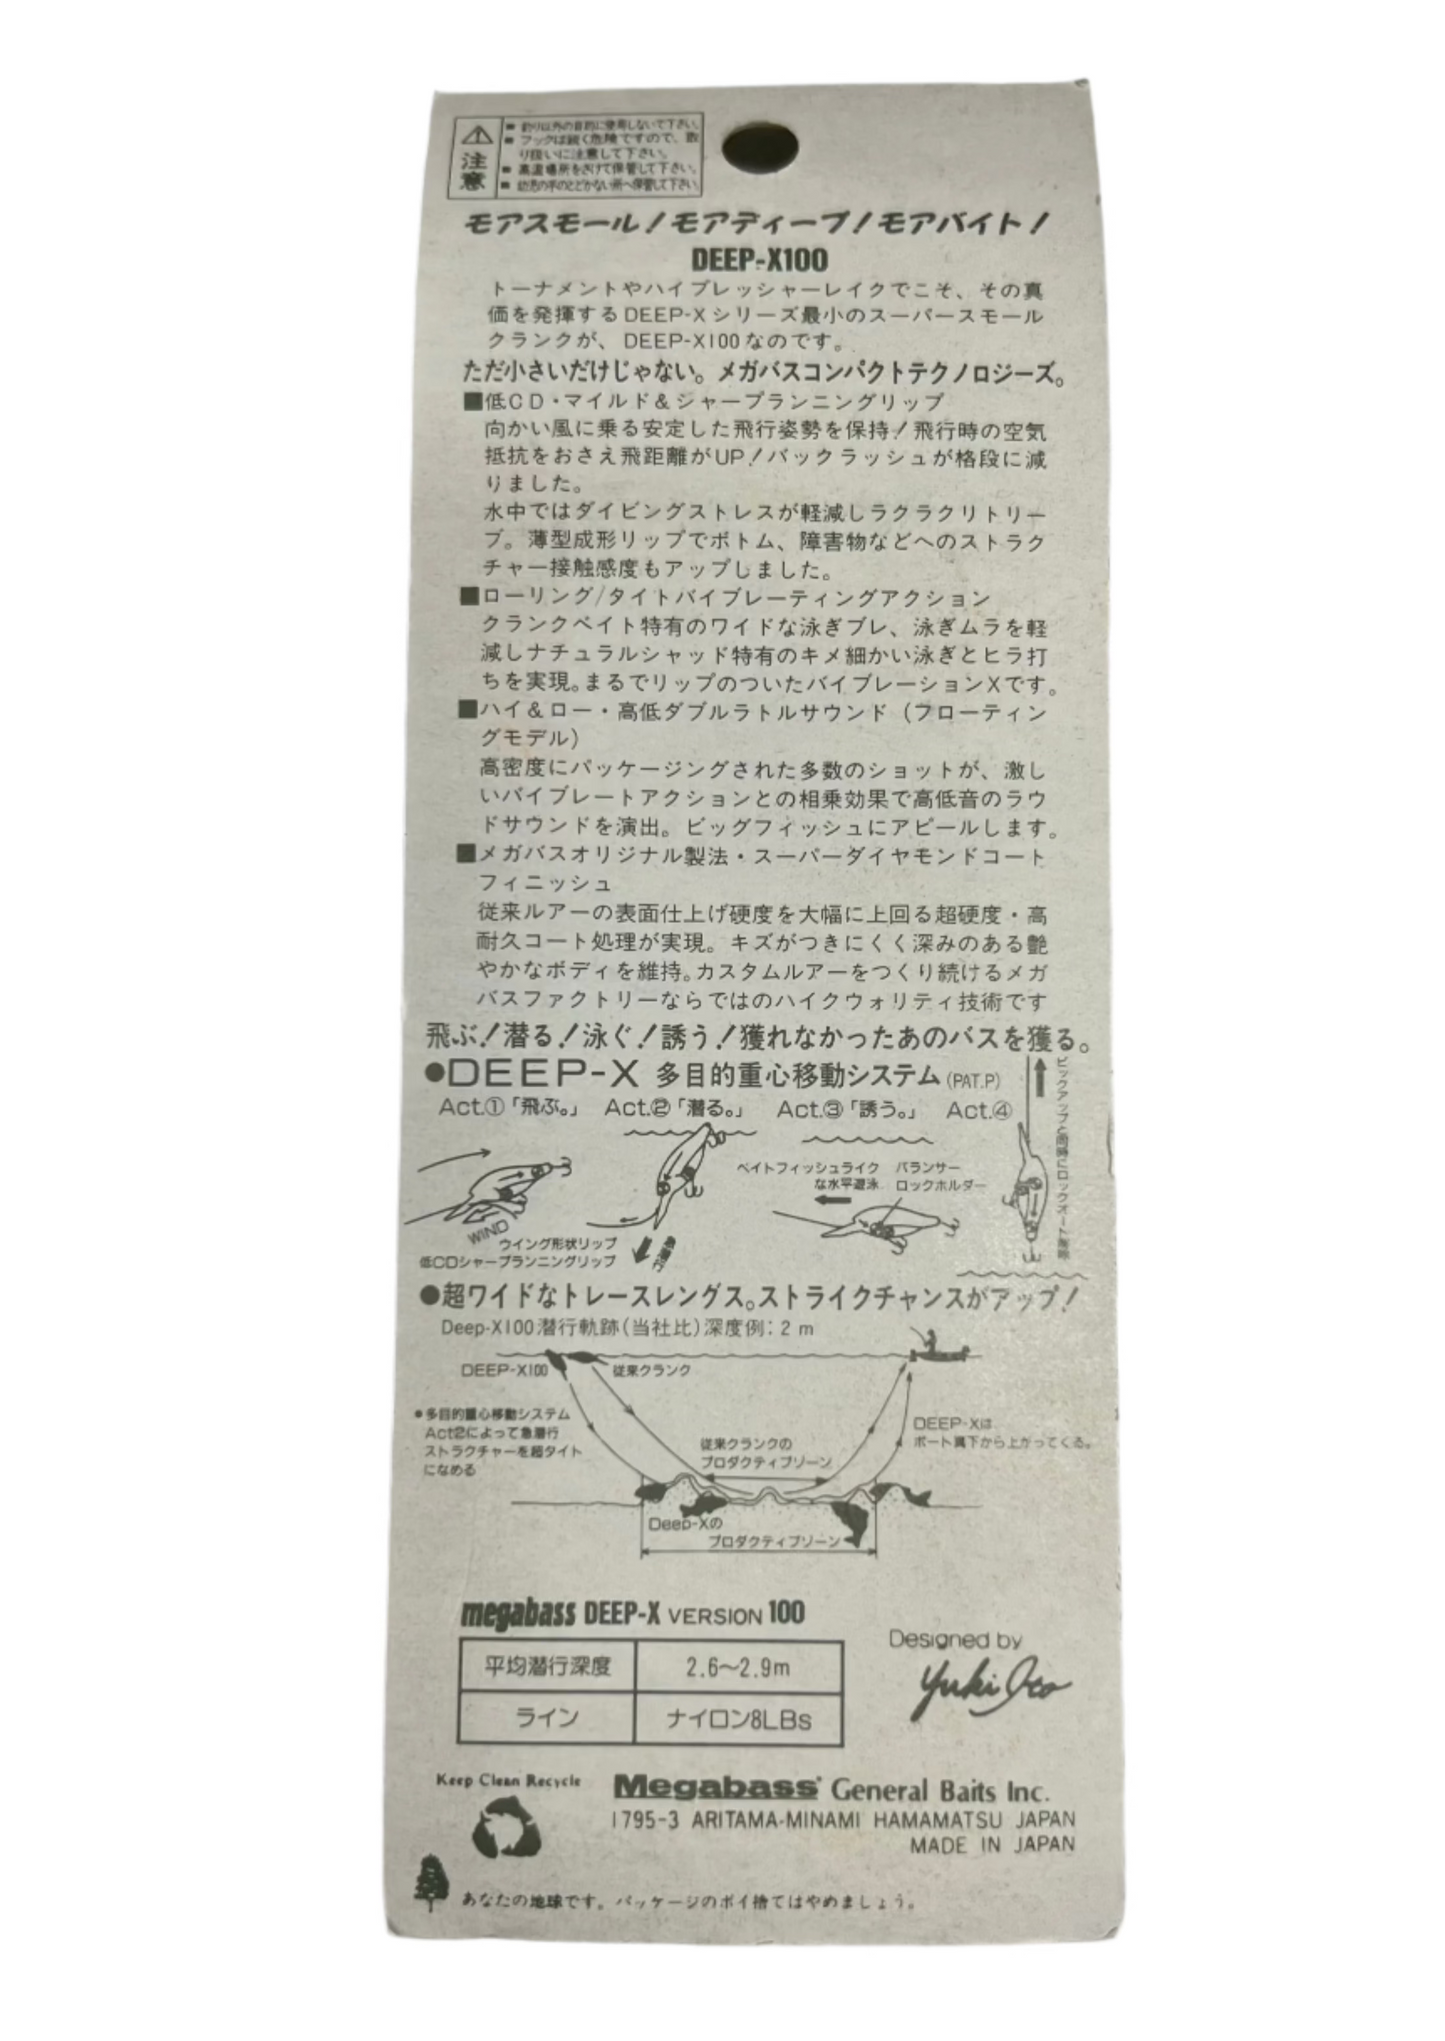 注意
■ 釣り以外の目的に使用しないで下さい。
■ フックは鋭く危険ですので、取
り扱いに注意して下さい。
■ 高温場所をさけて保管して下さい。
■ 幼児の手のとどかない所へ保管して下さい。
モアスモール!モアディープ!モアバイト!
DEEP-X100
トーナメントやハイプレッシャーレイクでこそ、その真
価を発揮するDEEP-Xシリーズ最小のスーパースモール
クランクが、DEEP-X100なのです。
ただ小さいだけじゃない。メガバスコンパクトテクノロジーズ。
■低CD・マイルド&シャープランニングリップ
向かい風に乗る安定した飛行姿勢を保持!飛行時の空気
抵抗をおさえ飛距離がUP!バックラッシュが格段に減
りました。
水中ではダイビングストレスが軽減しラクラクリトリー
ブ。薄型成形リップでボトム、障害物などへのストラク
チャー接触感度もアップしました。
■ローリング/タイトバイブレーティングアクション
クランクベイト特有のワイドな泳ぎブレ、泳ぎムラを軽
減しナチュラルシャッド特有のキメ細かい泳ぎとヒラ打
ちを実現。まるでリップのついたバイブレーションXです。
■ハイ&ロー・高低ダブルラトルサウンド(フローティン
グモデル)
高密度にパッケージングされた多数のショットが、激し
いバイブレートアクションとの相乗効果で高低音のラウ
ドサウンドを演出。ビッグフィッシュにアピールします。
■メガバスオリジナル製法・スーパーダイヤモンドコート
フィニッシュ
従来ルアーの表面仕上げ硬度を大幅に上回る超硬度・高
耐久コート処理が実現。キズがつきにくく深みのある艶
やかなボディを維持。カスタムルアーをつくり続けるメガ
バスファクトリーならではのハイクウォリティ技術です
飛ぶ!潜る!泳ぐ!誘う!獲れなかったあのバスを獲る。
●DEEP-X 多目的重心移動システム(PAT.P)
Act.①「飛ぶ。」 Act.②「潜る。」 Act.③「誘う。」 Act.④
ピックアップと同時にロックオート解除
ベイトフィッシュライク
な水平遊泳
バランサー
ロックホルダー
WIND
ウイング形状リップ
低CDシャープランニングリップ
急潜行
●超ワイドなトレースレングス。ストライクチャンスがアップ!
Deep-X100潜行軌跡(当社比)深度例:2m
DEEP-X100
従来クランク
●多目的重心移動システム
Act2によって急潜行
ストラクチャーを超タイト
になめる
従来クランクの
プロダクティブゾーン
DEEP-Xは
ボート真下から上がってくる。
Deep-Xの
プロダクティブゾーン
megabass DEEP-X VERSION 100
平均潜行深度 2.6〜2.9m
ライン ナイロン8LBs
Designed by
Yuki Ito
Keep Clean Recycle
Megabass General Baits Inc.
1795-3 ARITAMA-MINAMI HAMAMATSU JAPAN
MADE IN JAPAN
あなたの地球です。パッケージのポイ捨てはやめましょう。